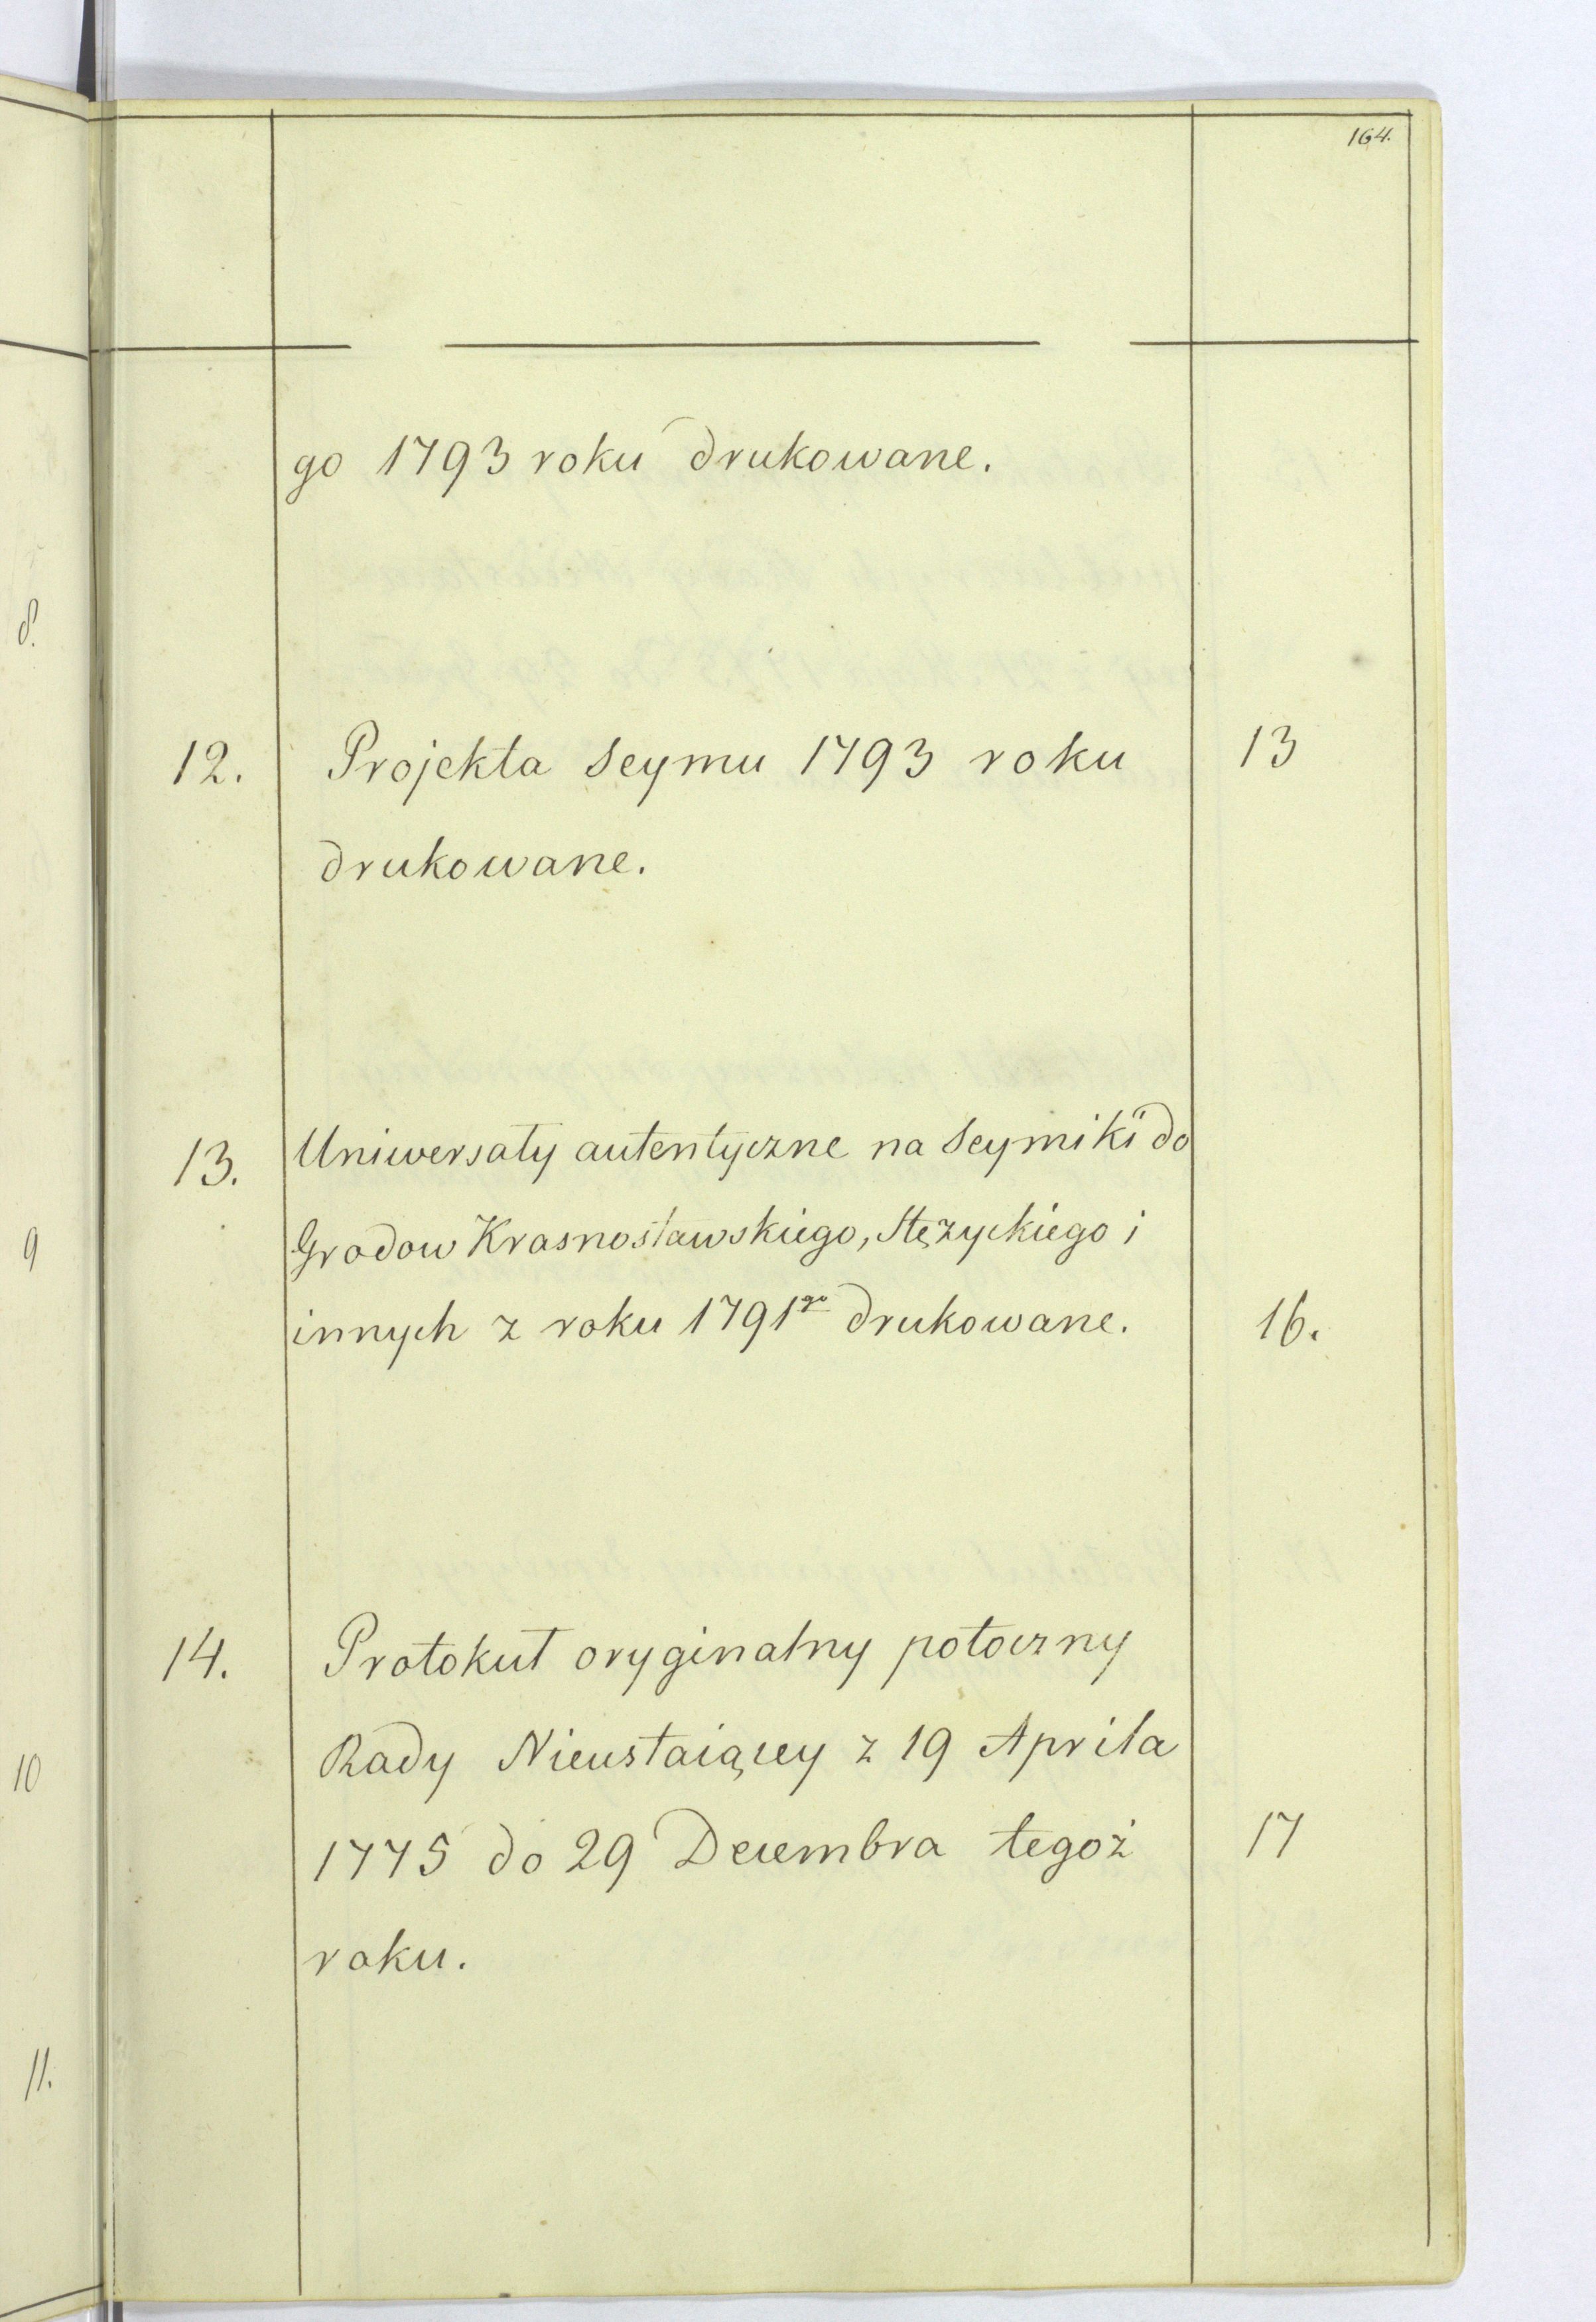 164.
go 1793 roku drukowane.
12. Projekta Seymu 1793 roku 13
drukowane.
13. Uniwersały autentyczne na Seymiki do
Grodow Krasnosławskiego, Stężyckiego i
innych z roku 1791go drukowane. 16.
14. Protokuł oryginalny potoczny
Rady Nieustaiącey z 19 Aprila
1775 do 29 Decembra tegoż 17
roku.
8.
9
10
11.